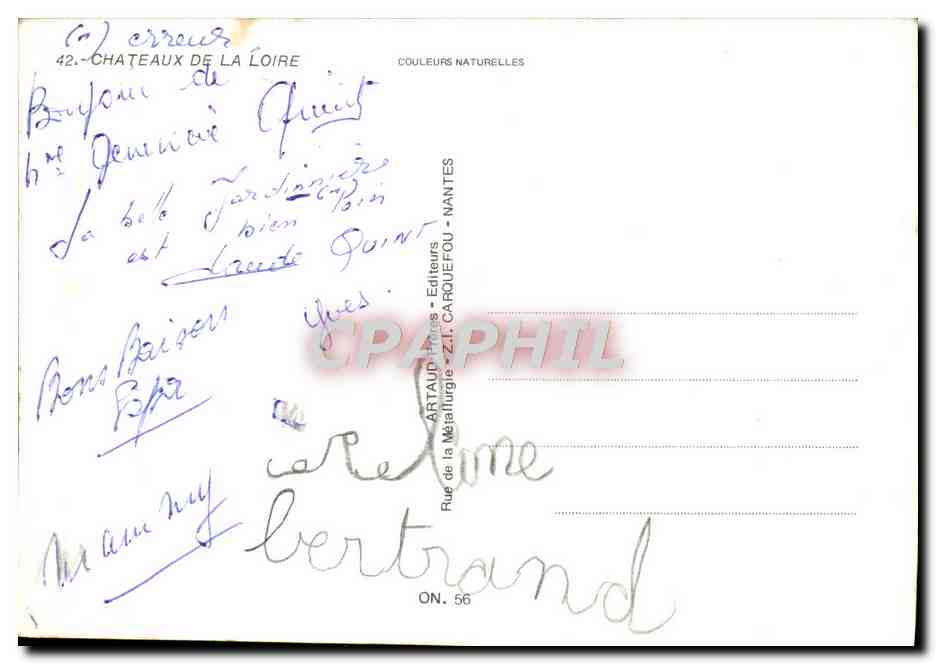 (-) erreur
42.- CHATEAUX DE LA LOIRE
COULEURS NATURELLES
Bonjour de
Geneviève Quint
La belle Jardinière
est bien
Claude QUINT
Bons Baisers
Yves.
Papa
Mammy
bertrand
ARTAUD Frères - Editeurs
Rue de la Métallurgie - Z.I. CARQUEFOU - NANTES
CPAPHIL
ON. 56